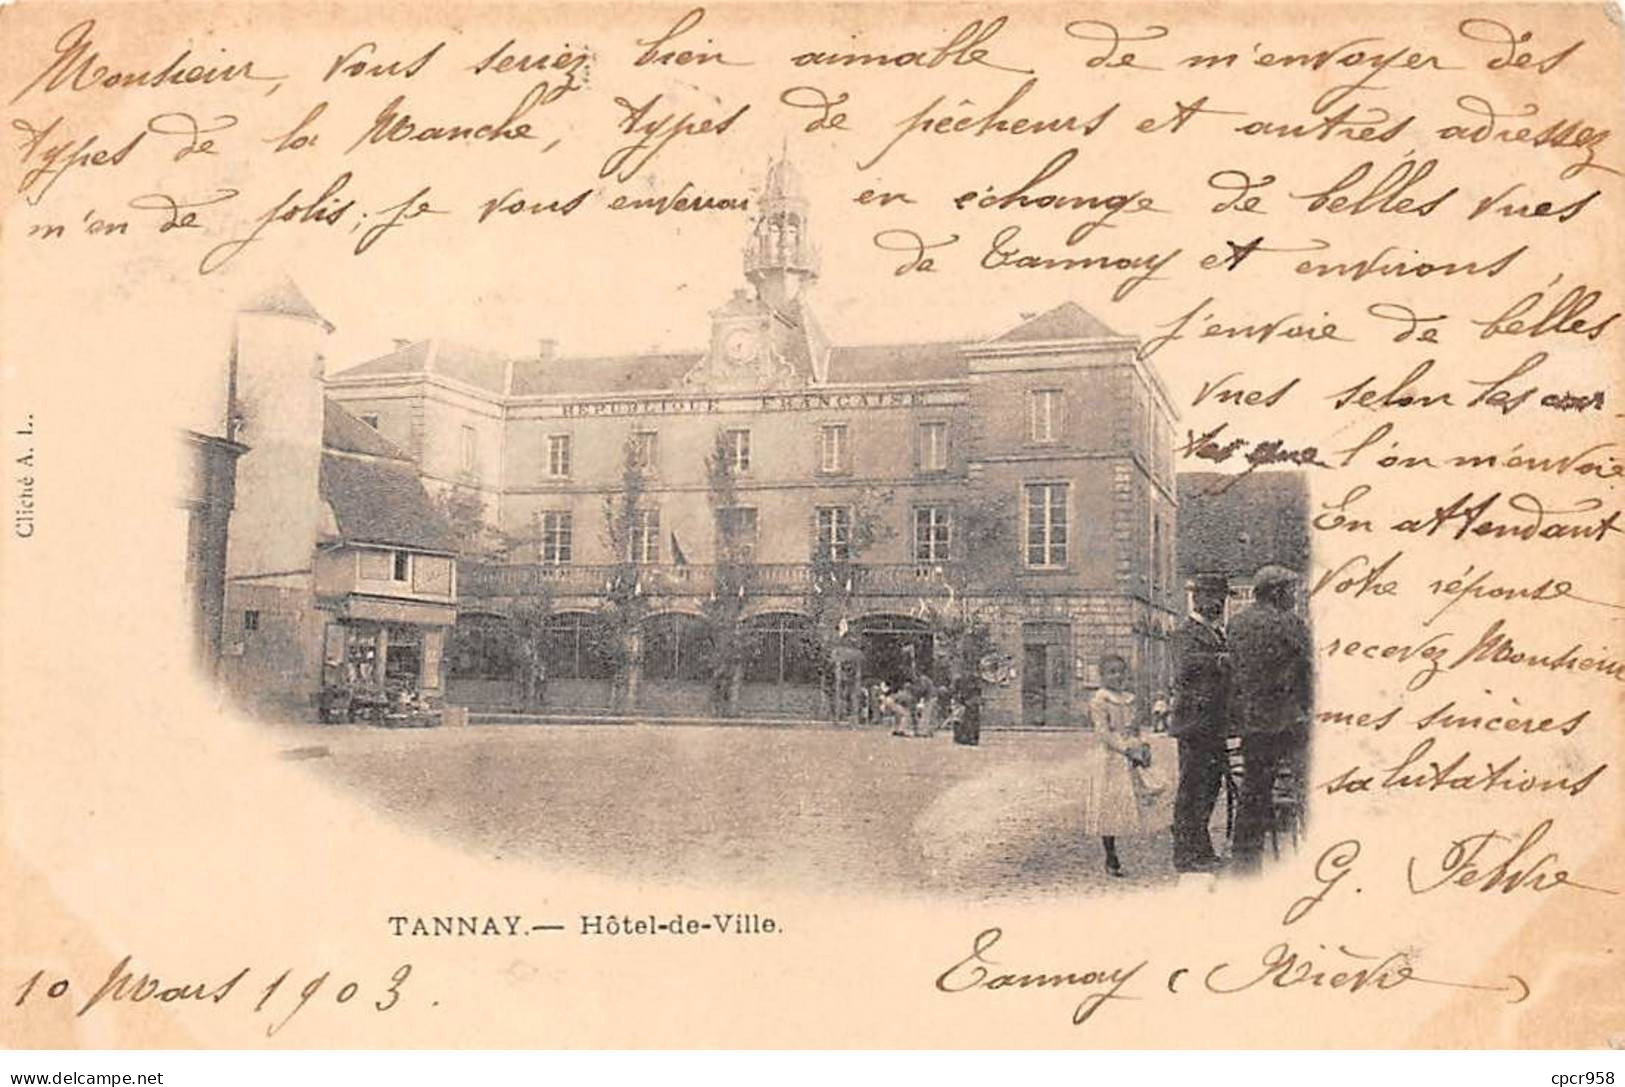 Monsieur, vous seriez bien aimable de m'envoyer des
types de la Manche, types de pêcheurs et autres, adressez
m'en de jolis; je vous enverrai en échange de belles vues
de Tannay et environs,
j'envoie de belles
vues selon les car
tes que l'on m'envoie
En attendant
votre réponse
recevez Monsieur
mes sincères
salutations
G. Febvre
Tannay (Nièvre)
REPUBLIQUE FRANÇAISE
Cliché A. L.
TANNAY.— Hôtel-de-Ville.
10 Mars 1903.
delcampe.net
cpcr958